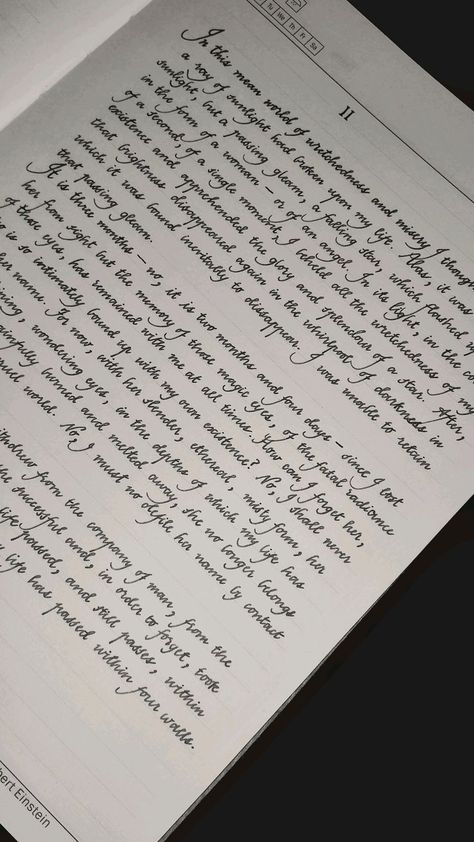 Tu We Th Fr Sa
11
In this mean world of wretchedness and misery I thought
a ray of sunlight had broken upon my life. Alas, it was
sunlight, but a passing gleam, a falling star, which flashed
in the form of a woman – or of an angel. In its light, in the
of a second, of a single moment, I beheld all the wretchedness of my
existence and apprehended the glory and splendour of a star. After,
that brightness disappeared again in the whirlpool of darkness in
which it was bound inevitably to disappear. I was unable to retain
that passing gleam.
It is three months – no, it is two months and four days – since I lost
her from sight but the memory of those magic eyes, of the fatal radiance
of those eyes, has remained with me at all times. How can I forget her,
is so intimately bound up with my own existence? No, I shall never
her name. For now, with her slender, ethereal, misty form, her
wondering eyes, in the depths of which my life has
burned and melted away, she no longer belongs
world. No, I must not defile her name by contact
withdrew from the company of man, from the
the successful and, in order to forget, took
life passed, and still passes, within
life has passed within four walls.
bert Einstein